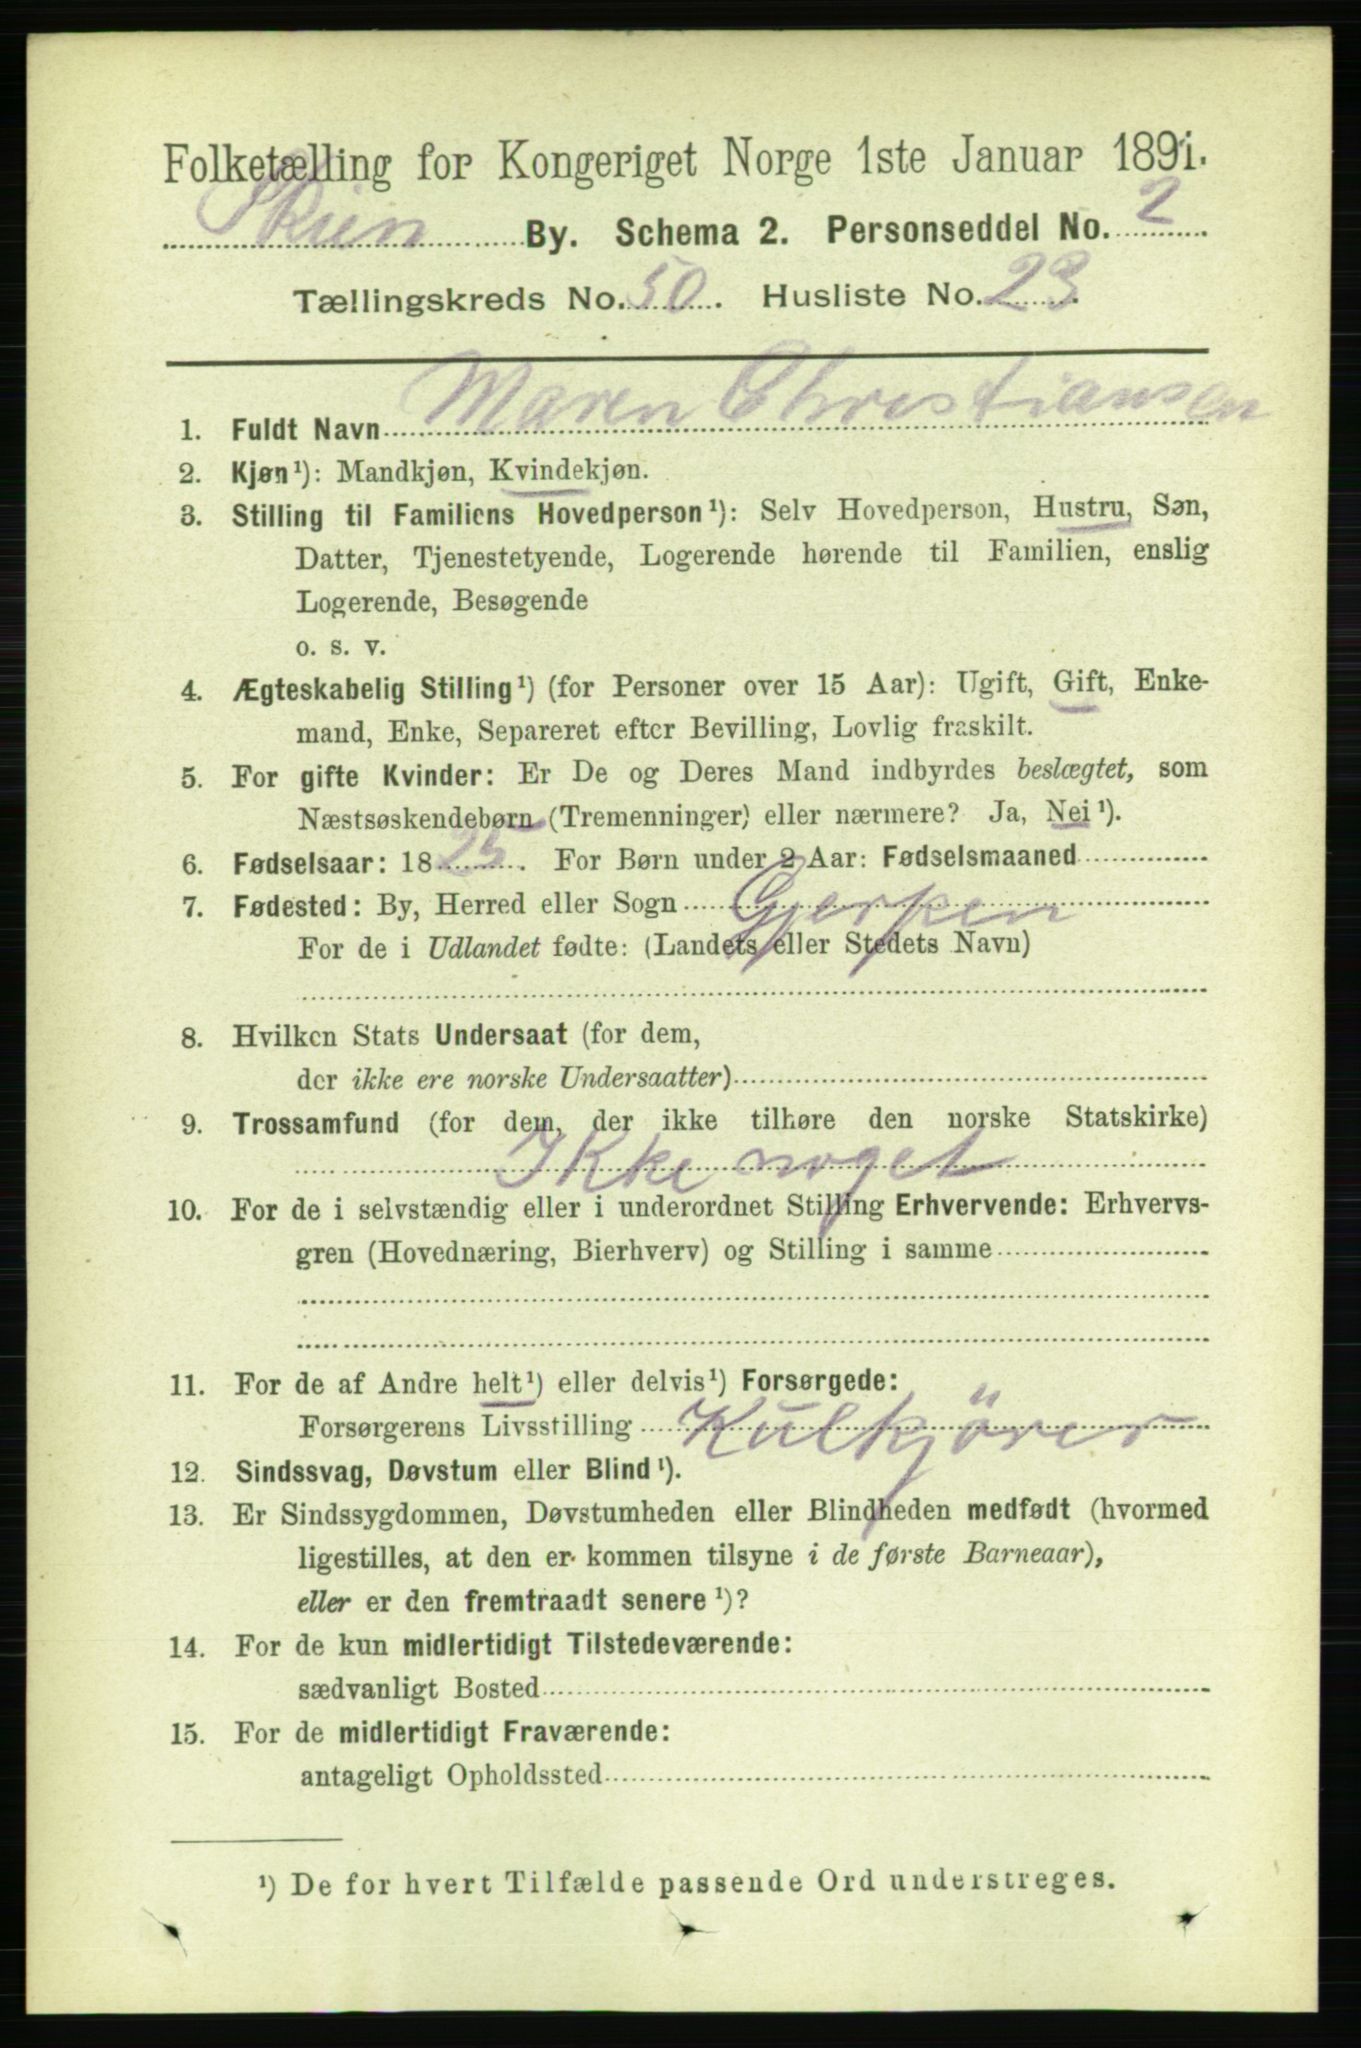 Folketælling for Kongeriget Norge 1ste Januar 1891.
Skien By. Schema 2. Personseddel No. 2
Tællingskreds No. 50. Husliste No. 23.
1. Fuldt Navn Maren Christiansen
2. Kjøn¹): Mandkjøn, Kvindekjøn.
3. Stilling til Familiens Hovedperson¹): Selv Hovedperson, Hustru, Søn,
Datter, Tjenestetyende, Logerende hørende til Familien, enslig
Logerende, Besøgende
o. s. v.
4. Ægteskabelig Stilling¹) (for Personer over 15 Aar): Ugift, Gift, Enke-
mand, Enke, Separeret efter Bevilling, Lovlig fraskilt.
5. For gifte Kvinder: Er De og Deres Mand indbyrdes beslægtet, som
Næstsøskendebørn (Tremenninger) eller nærmere? Ja, Nei¹).
6. Fødselsaar: 1825. For Børn under 2 Aar: Fødselsmaaned
7. Fødested: By, Herred eller Sogn Gjerpen
For de i Udlandet fødte: (Landets eller Stedets Navn)
8. Hvilken Stats Undersaat (for dem,
der ikke ere norske Undersaatter)
9. Trossamfund (for dem, der ikke tilhøre den norske Statskirke)
Ikke noget
10. For de i selvstændig eller i underordnet Stilling Erhvervende: Erhvervs-
gren (Hovednæring, Bierhverv) og Stilling i samme
11. For de af Andre helt¹) eller delvis¹) Forsørgede:
Forsørgerens Livsstilling Kulkjörer
12. Sindssvag, Døvstum eller Blind¹).
13. Er Sindssygdommen, Døvstumheden eller Blindheden medfødt (hvormed
ligestilles, at den er kommen tilsyne i de første Barneaar),
eller er den fremtraadt senere¹)?
14. For de kun midlertidigt Tilstedeværende:
sædvanligt Bosted
15. For de midlertidigt Fraværende:
antageligt Opholdssted
¹) De for hvert Tilfælde passende Ord understreges.